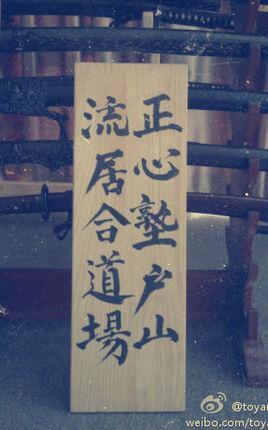 正心塾戸山
流居合道場
@toyam
weibo.com/toya